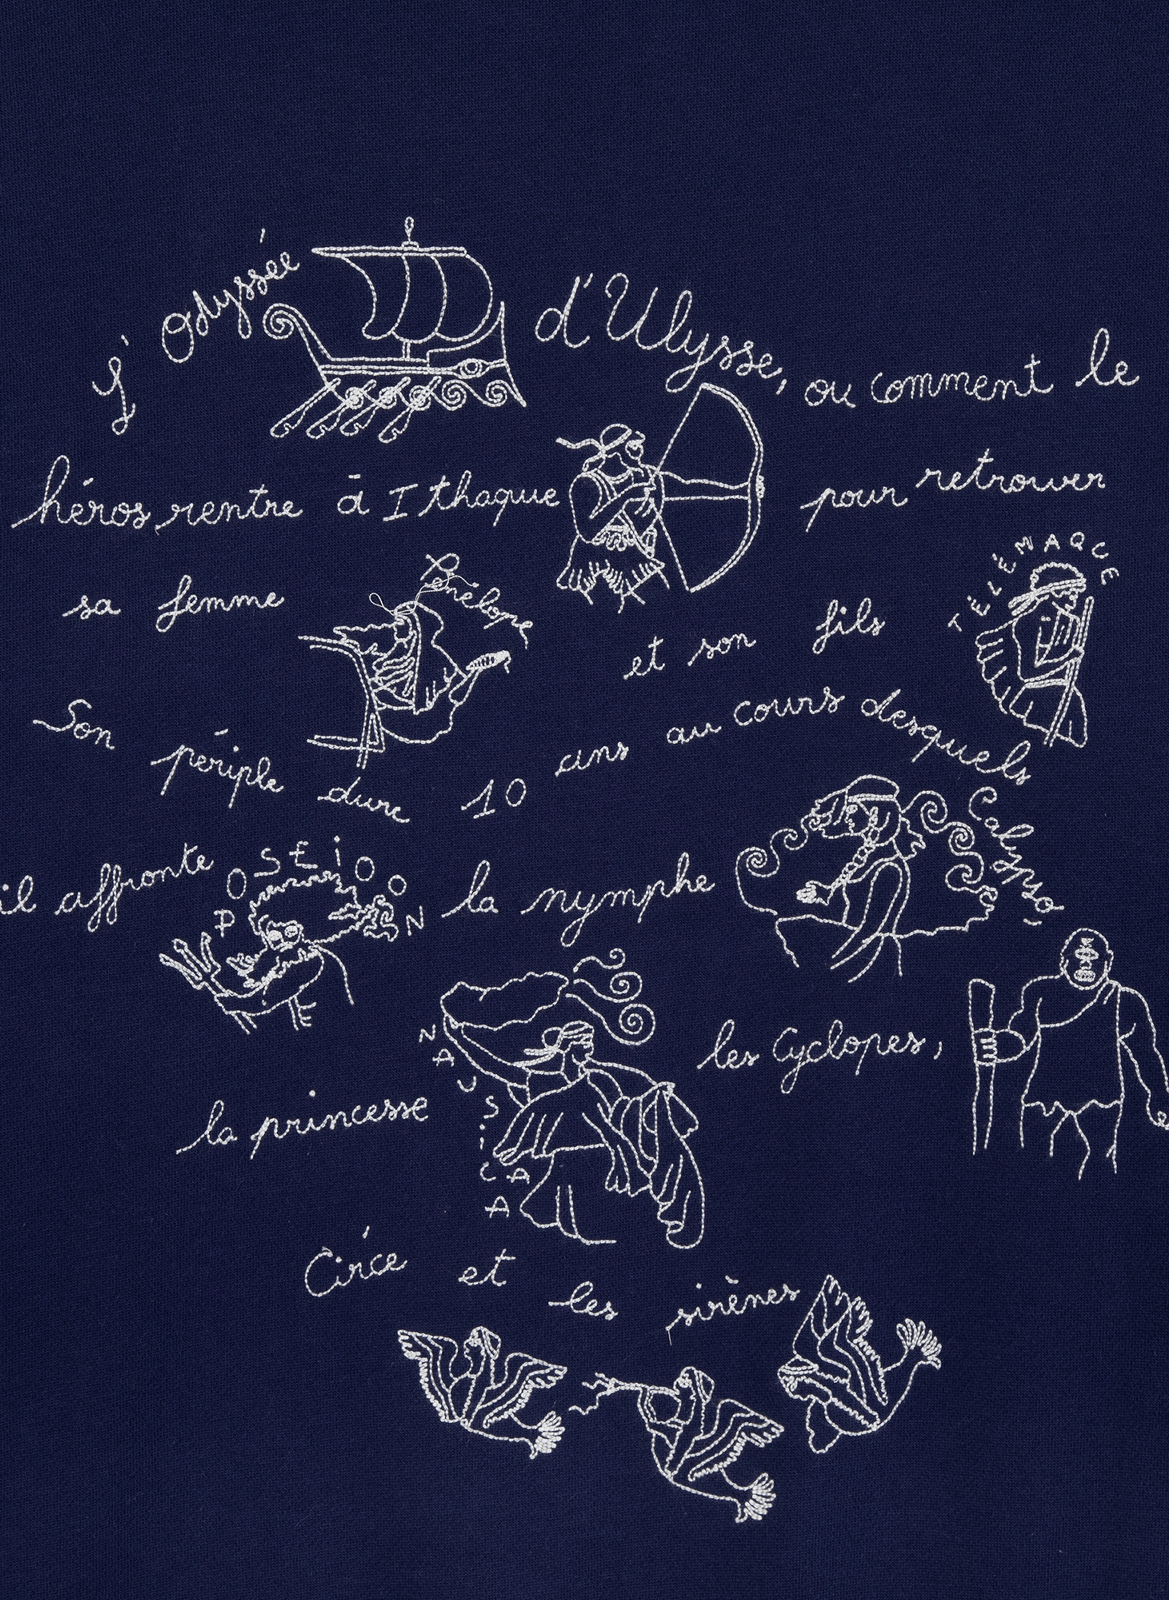 L'Odyssée d'Ulysse, ou comment le
héros rentre à Ithaque pour retrouver
sa femme Pénélope et son fils TÉLÉMAQUE
Son périple dure 10 ans au cours desquels
il affronte POSEIDON la nymphe Calypso,
la princesse NAUSICAA les Cyclopes,
Circé et les sirènes